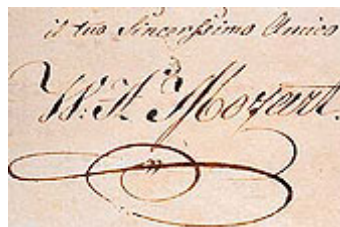 il tuo Sincerissimo Amico
W: A: Mozart.